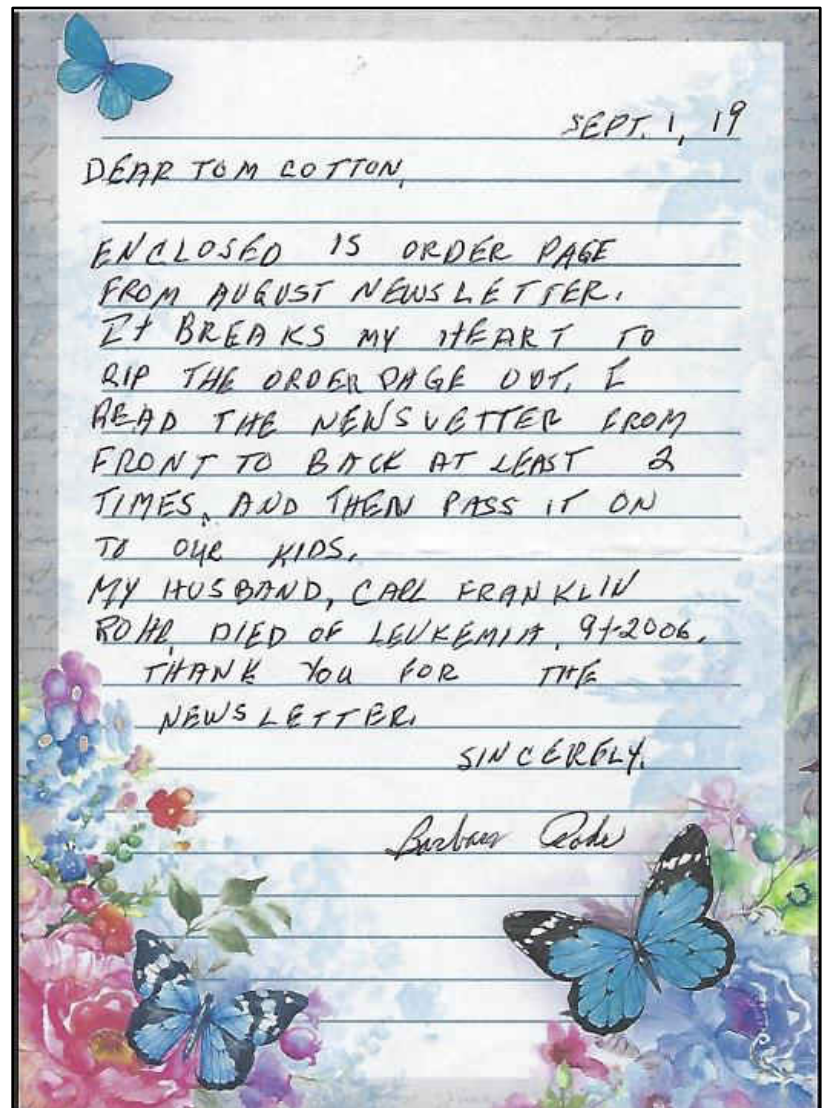 SEPT. 1, 19
DEAR TOM COTTON,
ENCLOSED IS ORDER PAGE
FROM AUGUST NEWSLETTER.
It BREAKS MY HEART TO
RIP THE ORDER PAGE OUT. I
READ THE NEWSLETTER FROM
FRONT TO BACK AT LEAST 2
TIMES, AND THEN PASS IT ON
TO OUR KIDS.
MY HUSBAND, CARL FRANKLIN
ROHR, DIED OF LEUKEMIA,
THANK YOU FOR THE
NEWSLETTER.
SINCERELY,
Barbara